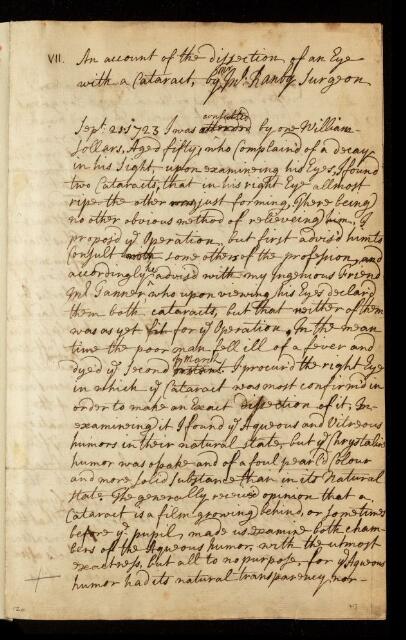 VII. An account of the dissection of an Eye
with a Cataract, by Mr Jno. Ranby Surgeon
consulted
Sept: 21st 1723 I was attended by one William
Sollars, Aged fifty, who Complaind of a decay
in his Sight, upon examineing his Eyes, I found
two Cataracts, that in his right Eye allmost
ripe the other was just forming, There being
no other obvious method of relieveing him, I
propos'd ye Operation, but first advis'd him to
Consult with some others of the profession, and
accordingly he advis'd with my Ingenious Friend
Mr. who upon viewing his Eyes declar'd
them both cataracts, but that neither of them
was as yet fit for ye Operation. In the mean
time the poor man fell ill of a fever and
of March
dyed ye second instant. I procur'd the right Eye
in which ye Cataract was most confirm'd in
order to make an Exact dissection of it, In
examineing it I found ye Aqueous and Vitreous
humors in their natural state, but ye Chrystaline
humor was opake and of a foul pearl Colour
and more solid Substance than in its Natural
State. The generally receiv'd opinion that a
Cataract is a film growing behind, or sometimes
before ye pupil, made us examine both cham-
bers of the Aqueous humor, with the utmost
exactness, but all to no purpose, for ye Aqueous
humor had its natural transparency, nor-